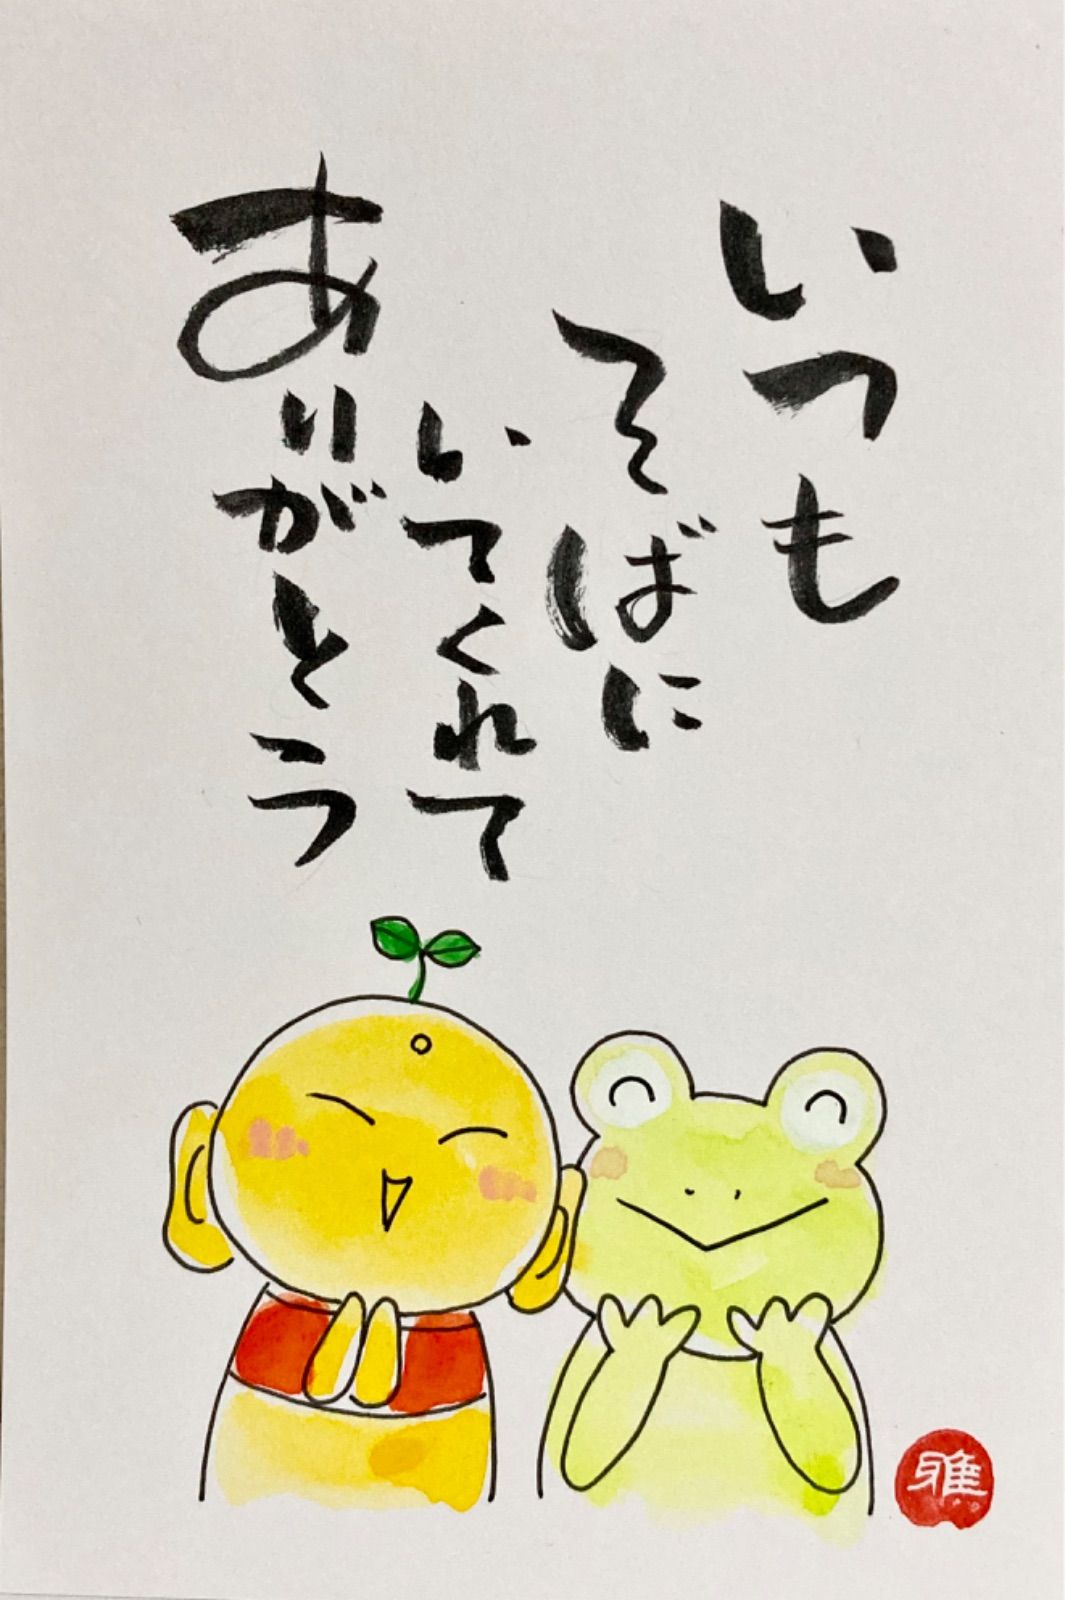 いつも
そばに
いてくれて
ありがとう
雅